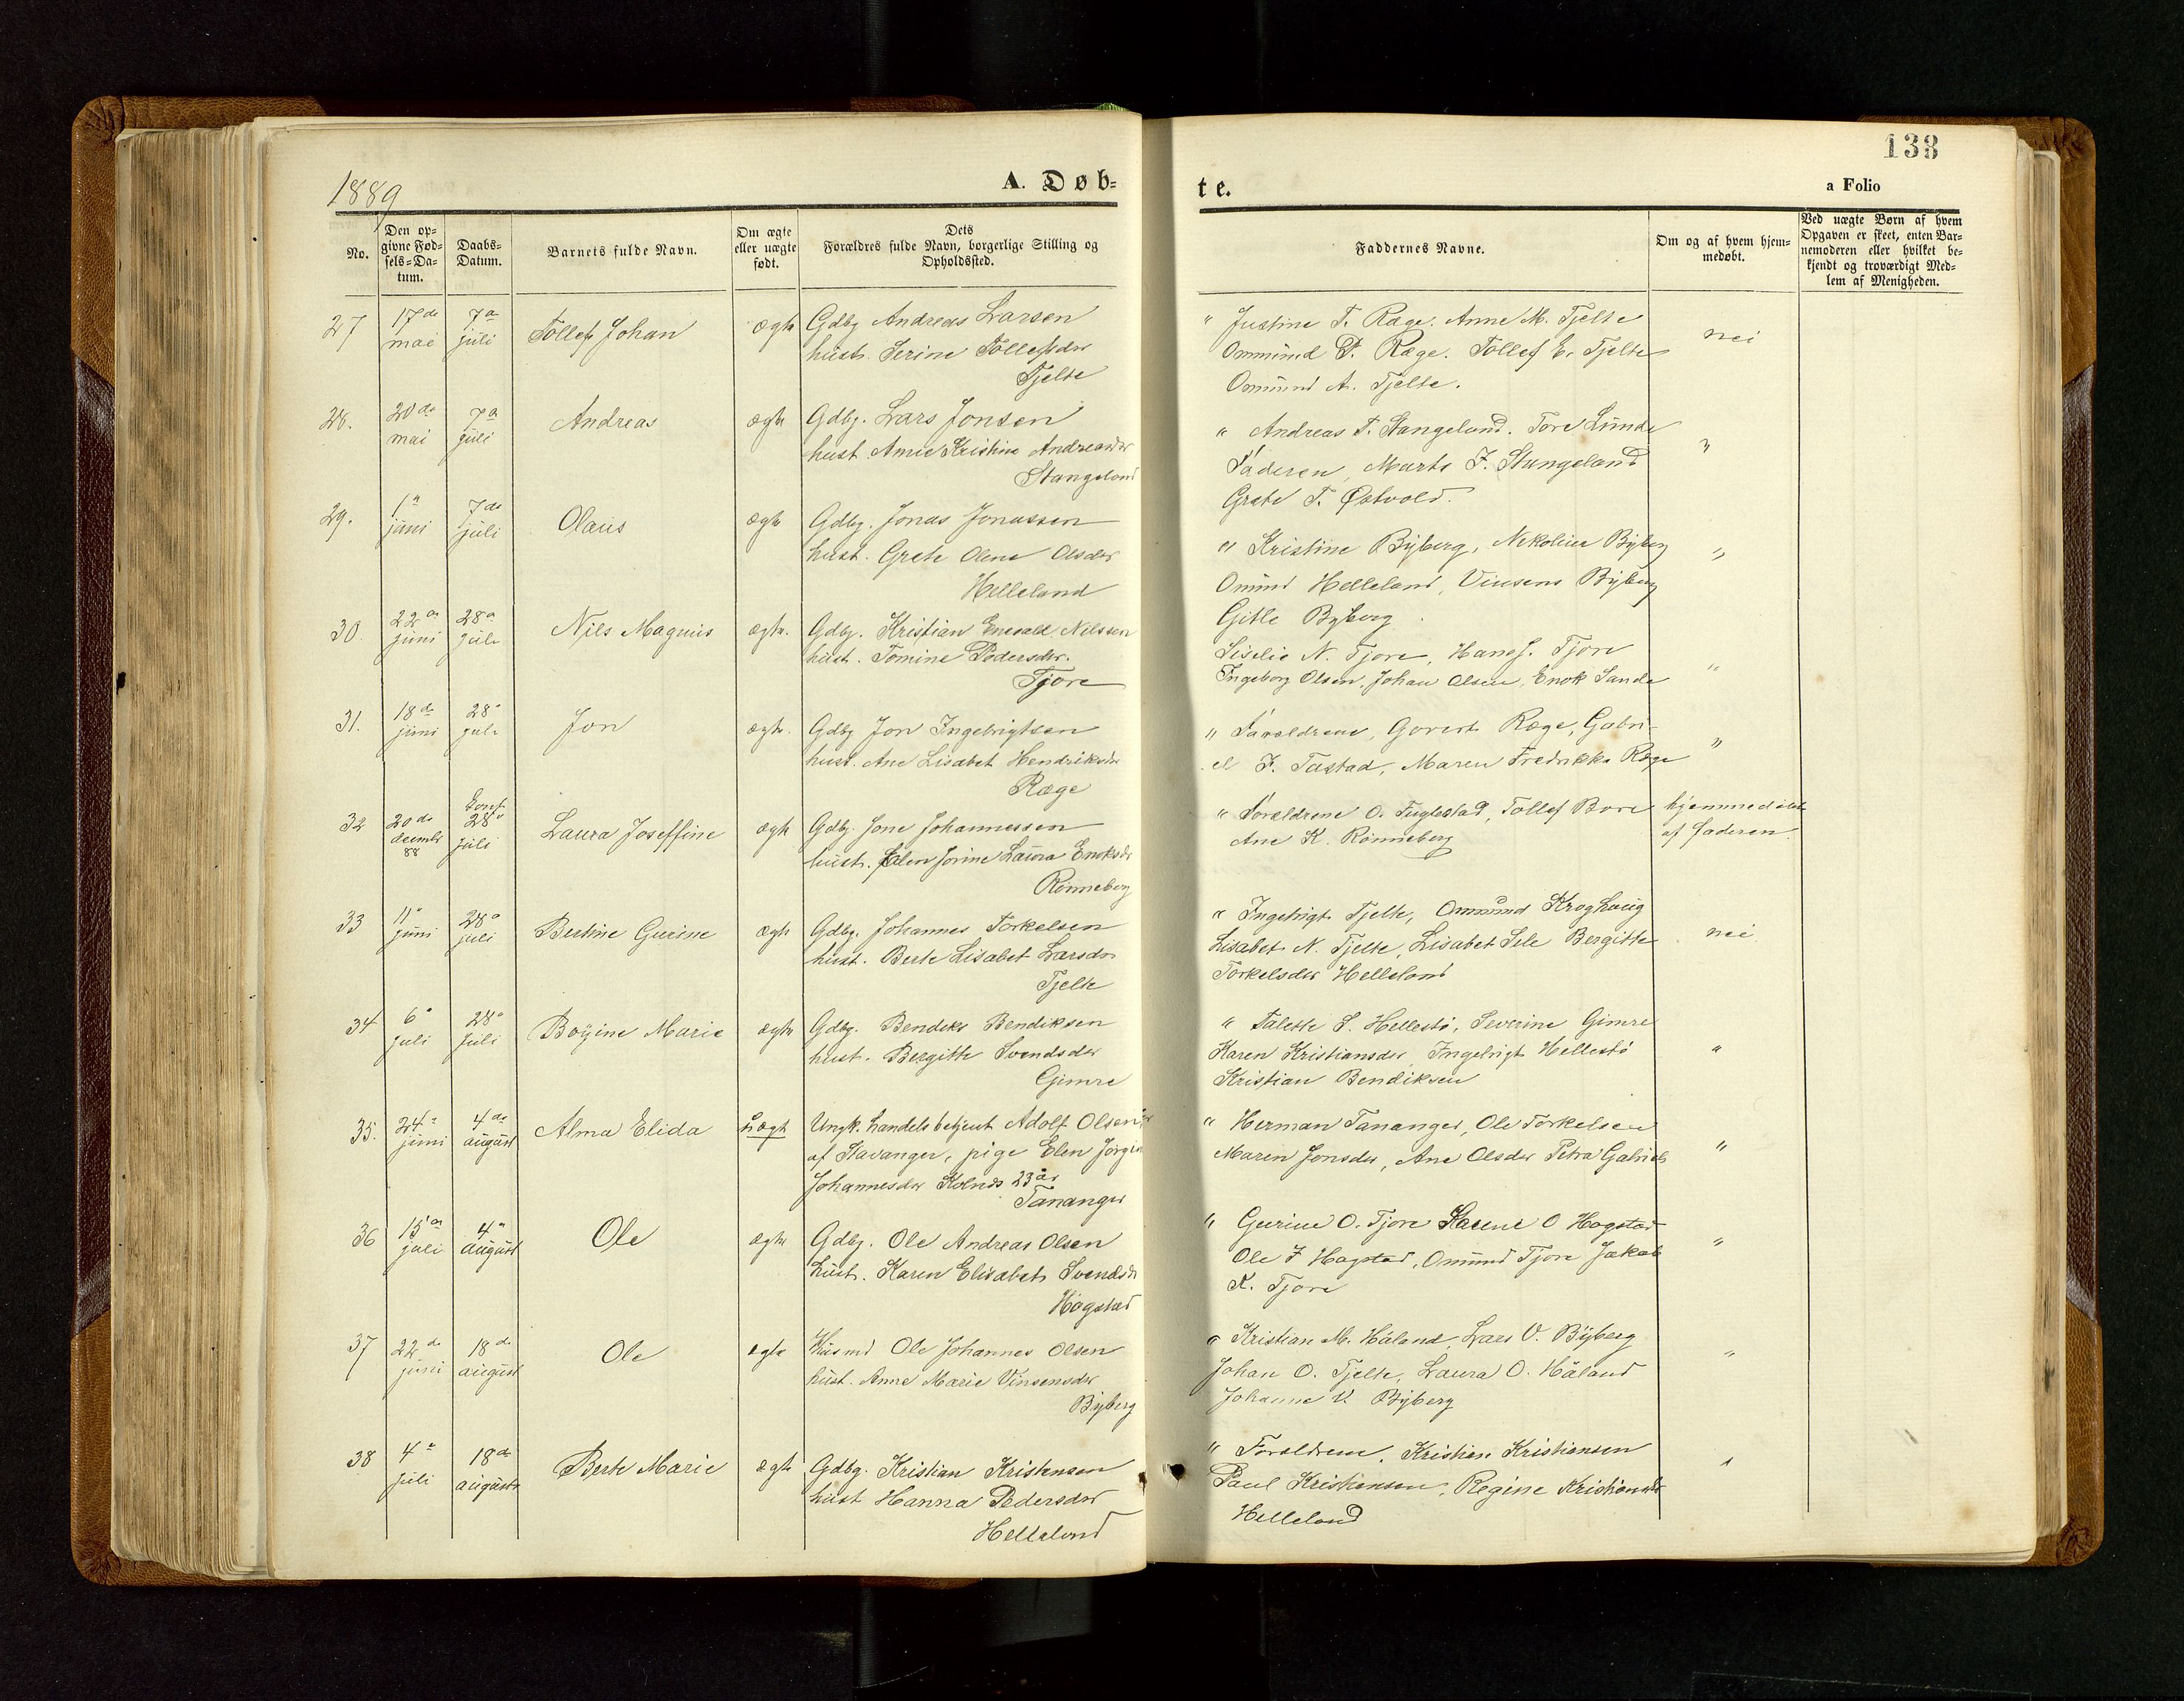 138
1889
A. Døb-
te.
a Folio
No.
Den op-
givne Fød-
sels-Da-
tum.
Daabs-
Datum.
Barnets fulde Navn.
Om ægte
eller uægte
født.
Dets
Forældres fulde Navn, borgerlige Stilling og
Opholdssted.
Faddernes Navne.
Om og af hvem hjem-
medøbt.
Ved uægte Børn af hvem
Opgaven er skeet, enten Bar-
nemoderen eller hvilket be-
kjendt og troværdigt Med-
lem af Menigheden.
27
17de
mai
7a
juli
Tollef Johan
ægte
Gdbg Andreas Larsen
hust. Serine Tollefsdr
Tjelte
" Justine T. Ræge. Anne M. Tjelte
Ommund T. Ræge. Tollef E. Tjelte
Ommund A. Tjelte.
nei
28.
20de
mai
7a
juli
Andreas
ægte
Gdbg. Lars Jonsen
hust. Kristine Andreasdr
Stangeland
" Andreas T. Stangeland. Tore Lunde
Faderen, Marte J. Stangeland
Grete T. Østvold.
"
29.
1a
juni
7de
juli
Olaus
ægte
Gdbg. Jonas Jonassen
hust. Grete Olene Olsdr
Helleland
" Kristine Byberg, Nikoline Byberg
Omund Helleland, Vinsens Byberg
Gitle Byberg
"
30.
22de
juni
28a
juli
Nils Magnus
ægte.
Gdbg. Kristian Enevald Nilssen
hust. Tomine Pedersdr.
Tjore
Siselie N. Tjore, Hans J. Tjore
Ingeborg Olsen, Johan Olsen, Enok Sande
"
31.
18de
juni
28a
juli
Jon
ægte.
Gdbg Jon Ingebrigtsen
hust. Ane Lisabet Hendriksdr
Ræge
" Forældrene, Govert Ræge, Gabri-
el F. Tastad, Maren Fredrikke Ræge
"
32
20de
decembr
88
28a
juli
Laura Joseffine
ægte
Gdbg. Jone Johannessen
hust. Elen Jorine Laura Enoksdr
Rønneberg
" Forældrene O. Fuglestad, Tollef Bore
Ane K. Rønneberg
hjemmedøbt
af faderen.
33
11a
juni
28a
juli
Bertine Gurine
ægte
Gdbg. Johannes Torkelsen
hust. Berte Lisabet Larsdr
Tjelte
" Ingebrigt Tjelte, Ommund Kroghoug
Lisabet N. Tjelte, Lisabet Sele Bergitte
Torkelsdr Helleland
nei
34
6a
juli
28a
juli
Boyine Marie
ægte
Gdbg. Bendiks Bendiksen
hust. Bergitte Svendsdr
Gimre
" Talette S. Hellestø, Severine Gimre
Karen Kristiansdr, Ingebrigt Hellestø
Kristian Bendiksen
"
35.
24a
juni
4de
august
Alma Elida
uægte
Ungk. handelsbetjent Adolf Olsen
af Stavanger, pige Elen Jørgine
Johannesdr Kolnes 23 år
Tananger
" Herman Tananger, Ole Torkelsen
Maren Jonsdr, Ane Olsdr Petra Gabriels
"
36
15de
juli
4a
august
Ole
ægte
Gdbg. Ole Andreas Olsen
hust. Karen Elisabet Svendsdr
Hagstad
" Gurine O. Tjore Karene O Hogstad
Ole J Hagstad, Omund Tjore Jakob
K. Tjore
"
37
22de
juni
18de
august
Ole
ægte
Husmd Ole Johannes Olsen
hust. Anne Marie Vinsensdr
Byberg
" Kristian M. Håland, Lars V. Byberg
Johan O. Tjelte, Laura O. Håland
Johanne V. Byberg
"
38
4a
juli
18de
august
Berte Marie
ægte
Gdbg. Kristian Kristensen
hust Hanna Pedersdr
Helleland
" Forældrene, Kristian Kristiansen
Paul Kristensen, Regine Kristiansdr
Helleland
"